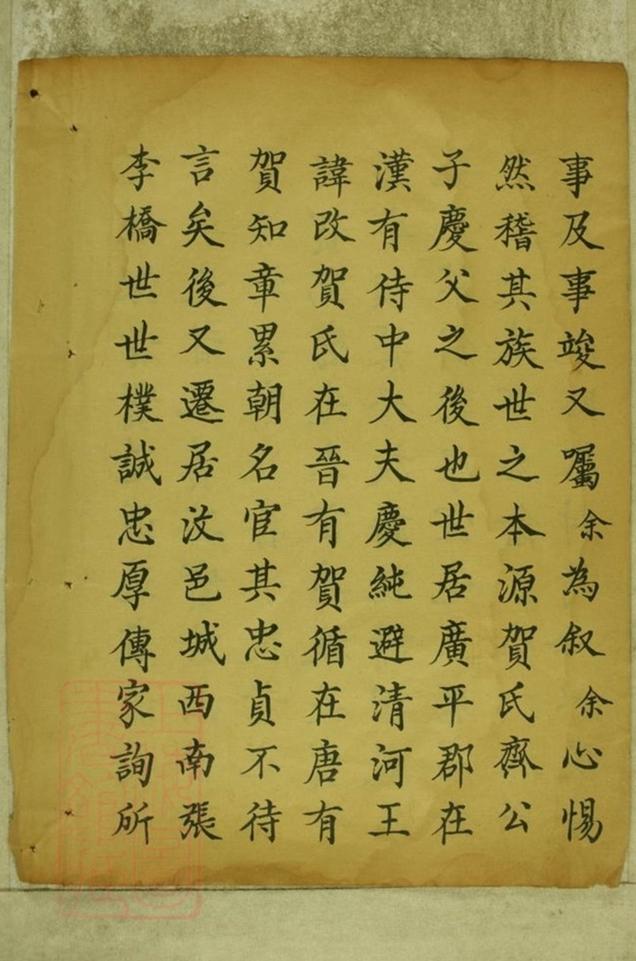 事及事竣又嘱余為叙余心惕
然稽其族世之本源賀氏齊公
子慶父之後也世居廣平郡在
漢有侍中大夫慶純避清河王
諱改賀氏在晉有賀循在唐有
賀知章累朝名官其忠貞不待
言矣後又遷居汶邑城西南張
李橋世世樸誠忠厚傳家詢所